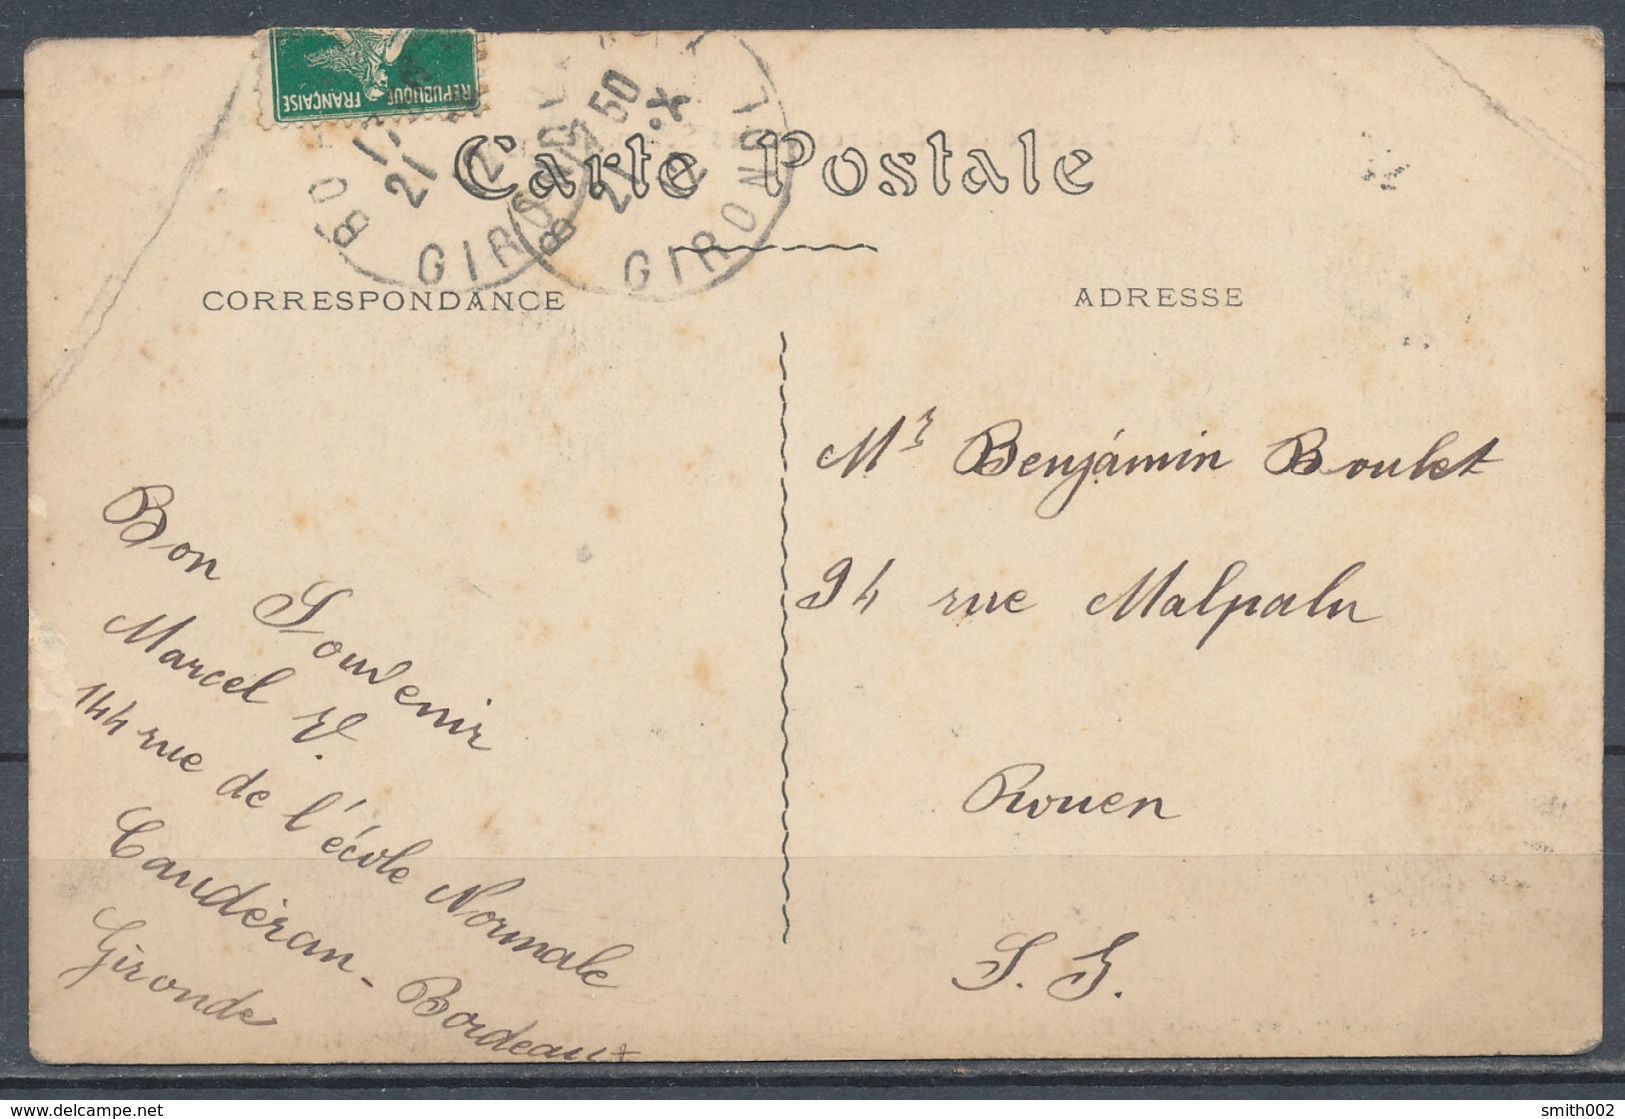 REPUBLIQUE FRANÇAISE
GIRONDE
Carte Postale
CORRESPONDANCE
ADRESSE
Bon Souvenir
Marcel V.
144 rue de l'école Normale
Caudéran - Bordeaux
Gironde
Mr Benjámin Boulet
94 rue Malpalu
Rouen
S. I.
delcampe.net
smith002